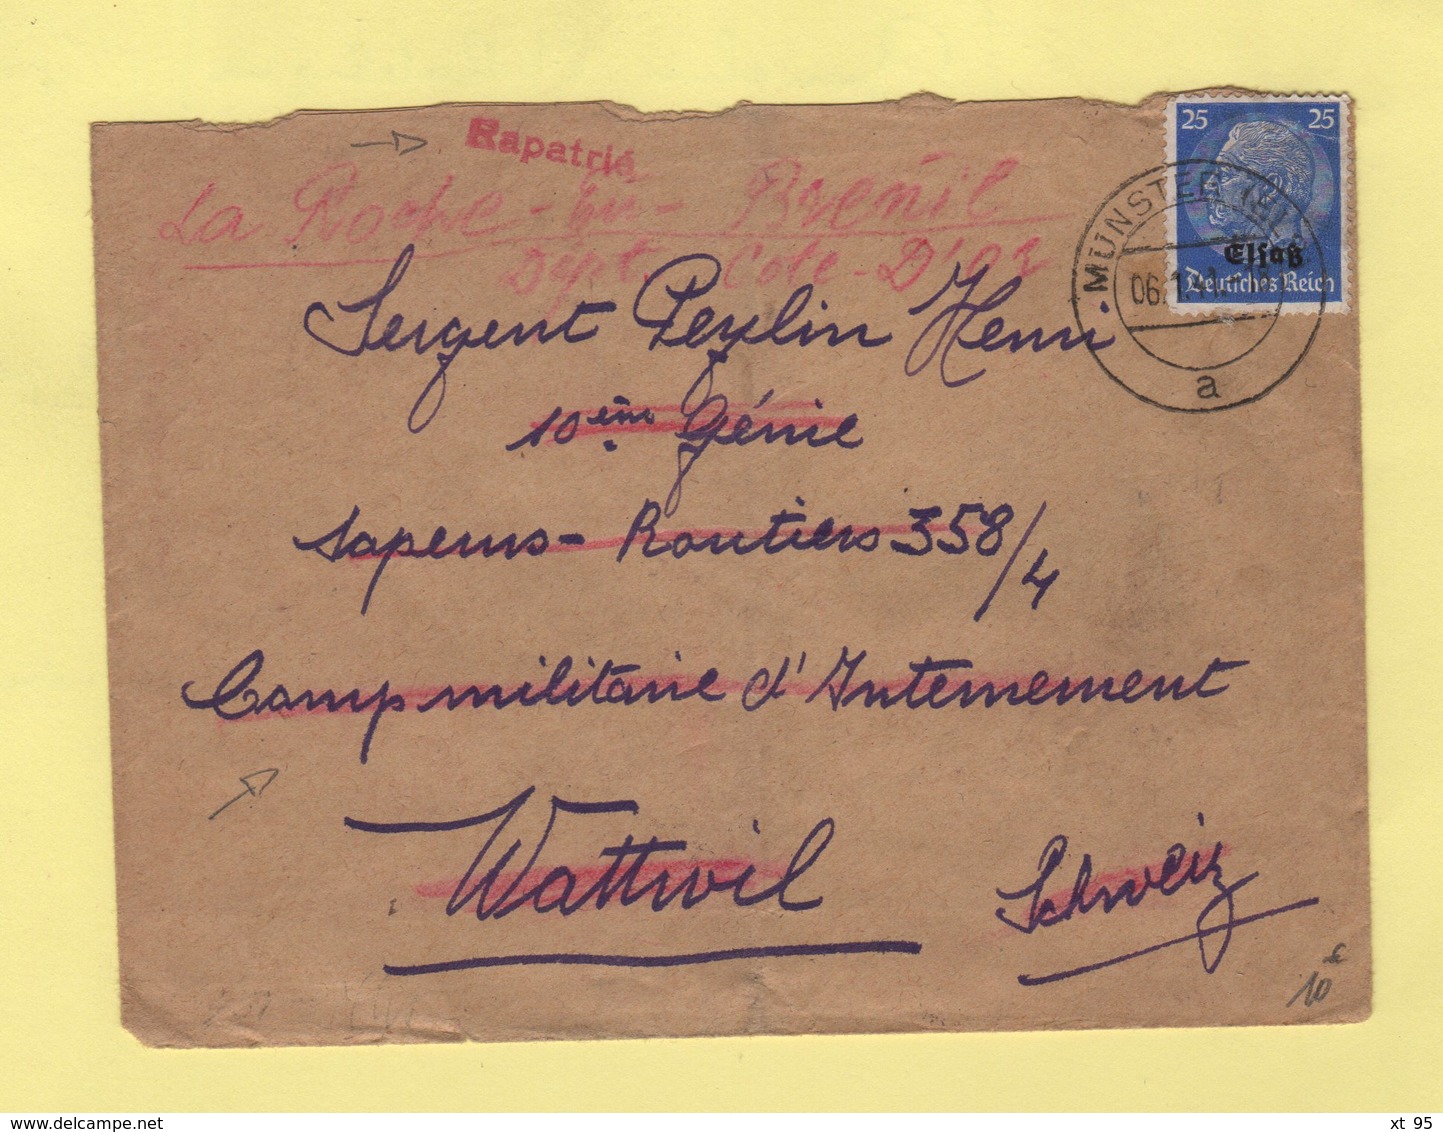 Rapatrié
La Roche-en-Brenil
Dept. Cote-D'or
25 25
Elsaß
Deutsches Reich
MÜNSTER (ELS)
06.1.41
a
Sergent Peylin Henri
10ème Génie
Sapeurs-Routiers 358/4
Camp militaire d'Internement
Wattwil Schweiz
10 €
xt 95